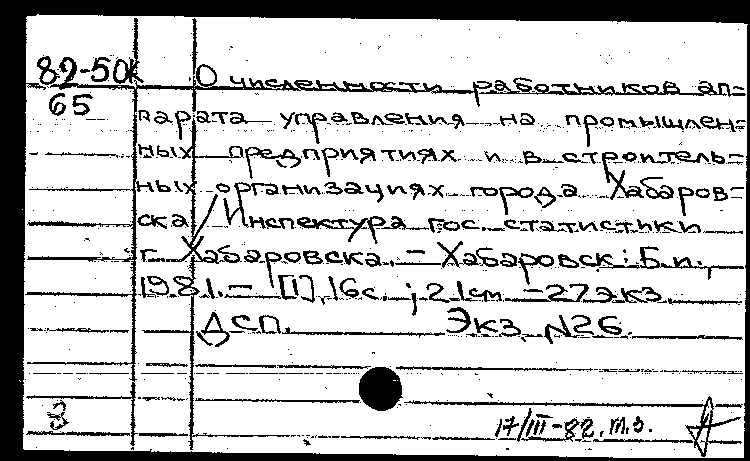 82-50к О численности работников ап-
65 парата управления на промышлен-
ных предприятиях и в строитель-
ных организациях города Хабаров-
ска / Инспектура гос. статистики
г. Хабаровска. - Хабаровск : Б.и.,
1981. - [1], 16с. ; 21см - 27экз.
ДСП. Экз. N26.
3
17/III-82. т.з.